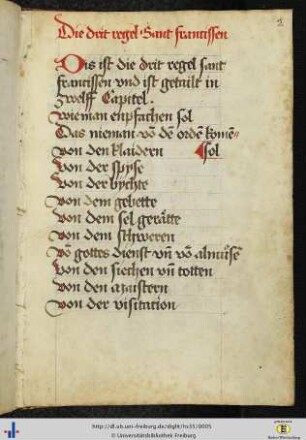 Die drit regel Sant francissen
1
Dis ist die drit regel sant
francissen vnd ist getailt in
zwelff Capitel.
wie man enpfachen sol
Das nieman vō dē ordē komē=
von den klaidern sol
Von der spyse
Von der bychte
von dem gebette
von dem sel gerätte
von dem schweren
vō gottes dienst vn̄ vō almůsē
von den siechen vn̄ totten
von den maistern
von der visitation
http://dl.ub.uni-freiburg.de/diglit/hs31/0005
© Universitätsbibliothek Freiburg